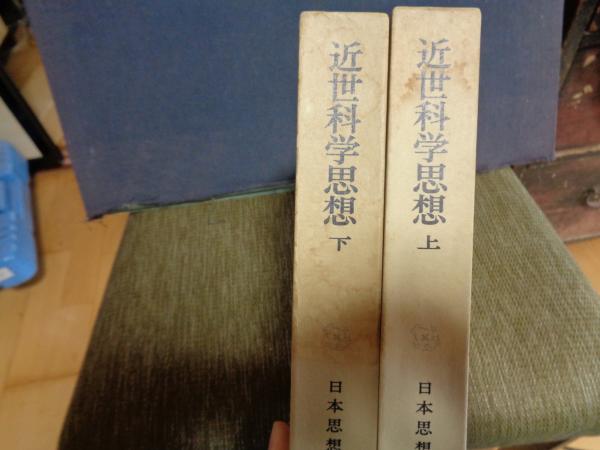 近世科学思想 上
日本思想
近世科学思想 下
日本思想